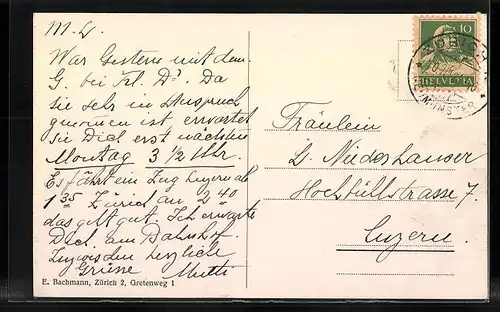 M. L.
War Gestern mit dem
G. bei Frl. Dr. Da
sie sehr in Anspruch
genommen ist erwartet
sie Dich erst nächsten
Montag 3 1/2 Uhr.
Es fährt ein Zug Luzern ab
1 35 Zürich an 2 40
das geht gut. Ich erwarte
Dich am Bahnhof.
Inzwischen herzliche
Grüsse Mutti
E. Bachmann, Zürich 2, Gretenweg 1
10
HELVETIA
ZÜRICH
NEUMÜNSTER
Fräulein
L. Niedeshauser
Hochbüllstrasse 7.
Luzern.